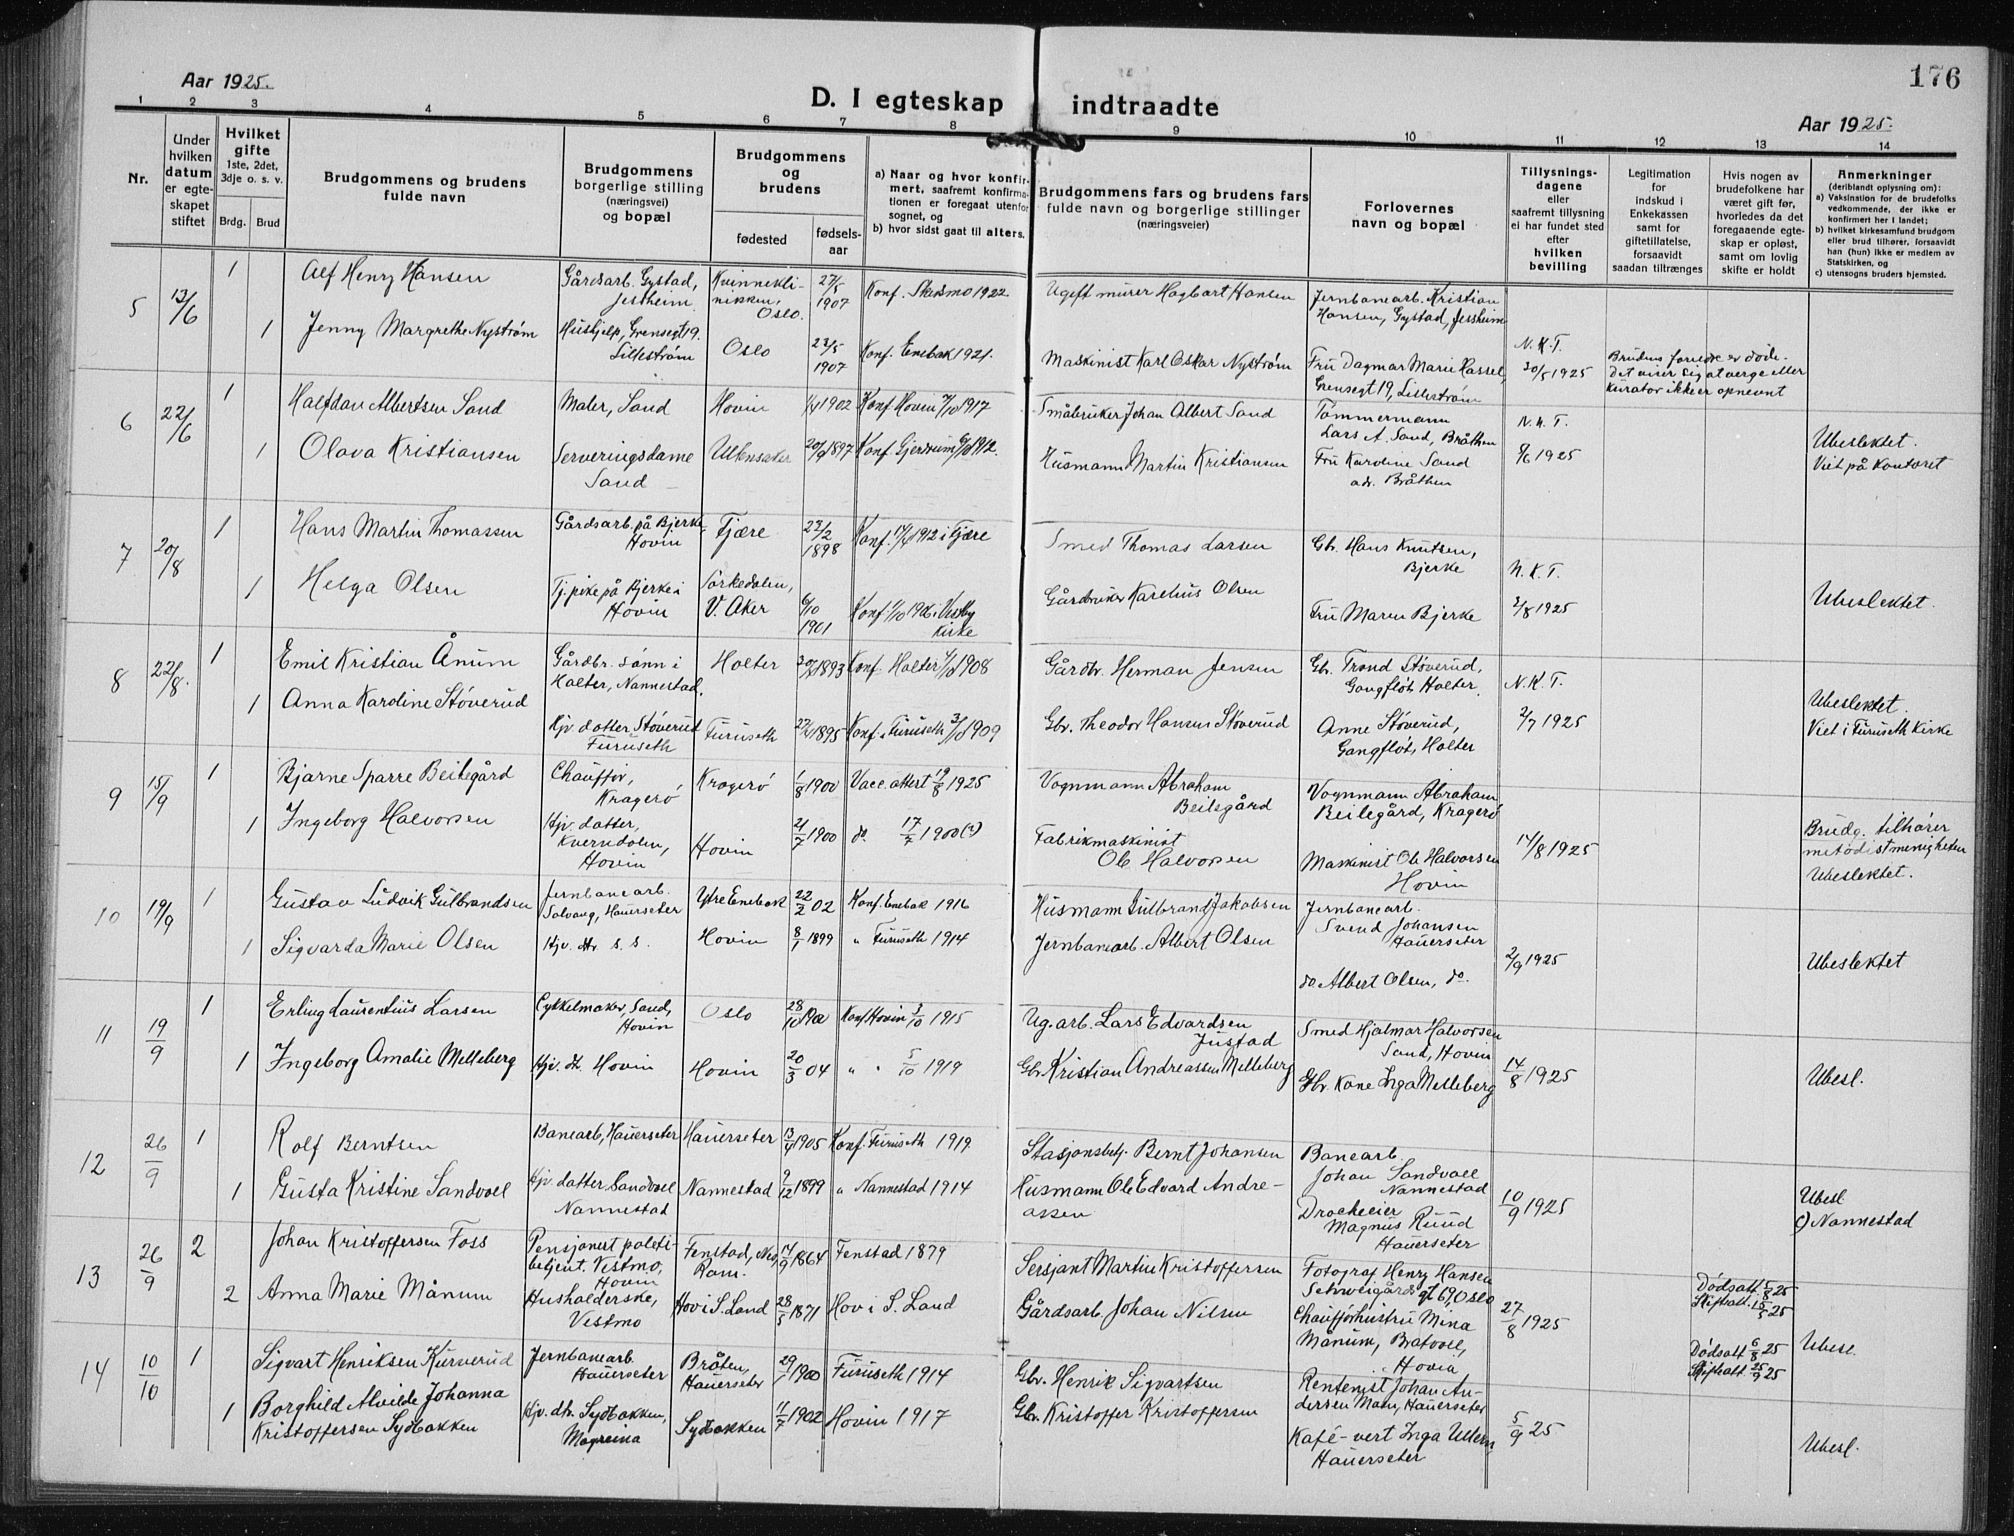 176
Aar 1925.
D. I egteskap indtraadte
Aar 1925.
1 2 3 4 5 6 7 8 9 10 11 12 13 14
Nr.
Under hvilken datum er egte-skapet stiftet
Hvilket gifte 1ste, 2det, 3dje o. s. v.
Brdg. Brud
Brudgommens og brudens fulde navn
Brudgommens borgerlige stilling (næringsvei) og bopæl
Brudgommens og brudens
fødested fødsels-aar
a) Naar og hvor konfir-mert, saafremt konfirma-tionen er foregaat utenfor sognet, og
b) hvor sidst gaat til alters.
Brudgommens fars og brudens fars fulde navn og borgerlige stillinger (næringsveier)
Forlovernes navn og bopæl
Tillysnings-dagene eller saafremt tillysning ei har fundet sted efter hvilken bevilling
Legitimation for indskud i Enkekassen samt for giftetillatelse, forsaavidt saadan tiltrænges
Hvis nogen av brudefolkene har været gift før, hvorledes da det foregaaende egte-skap er opløst, samt om lovlig skifte er holdt
Anmerkninger (deriblandt oplysning om):
a) Vaksination for de brudefolks vedkommende, der ikke er konfirmert her i landet;
b) hvilket kirkesamfund brudgom eller brud tilhører, forsaavidt han (hun) ikke er medlem av Statskirken, og
c) utensogns bruders hjemsted.
5 13/6 1 Alf Henry Hansen Gårdsarb. Gystad, Jessheim Kvinnekli-nikken, Oslo. 27/5 1907 Konf. Skedsmo 1922 Ugift murer Hagbart Hansen Jernbanearb. Kristian Hansen, Gystad, Jessheim
1 Jenny Margrethe Nystrøm Hushjelp, Grensegt 19. Lillestrøm Oslo 23/5 1907 Konf. Enebak 1921. Maskinist Karl Oskar Nystrøm Fru Dagmar Marie Hassel, Grensegt 19, Lillestrøm N.K.T. 30/5 1925 Brudens foreldre er døde. Det viser sig at verge eller kurator ikke er opnevnt
6 22/6 1 Halfdan Albertsen Sand Maler, Sand Hovin 1902 Konf. Hovin 1917 Småbruker Johan Albert Sand Tømmermann Lars A. Sand, Bråthen N.K.T.
1 Olava Kristiansen Serveringsdame Sand Ullensaker 1897 Konf. Gjerdrum 1912. Husmann Martin Kristiansen Fru Karoline Sand adr. Bråthen 9/6 1925 Ubeslektet. Viet på Kontoret
7 20/8 1 Hans Martin Thomassen Gårdsarb. på Bjerke, Hovin Fjære 23/2 1898 Konf. 1912 i Fjære Smed Thomas Larsen Gbr. Hans Knutsen, Bjerke N.K.T.
1 Helga Olsen Tj.pike på Bjerke i Hovin Sørkedalen, V. Aker 6/10 1901 Konf. Vestby Kirke Gårdbruker Karelius Olsen Fru Maren Bjerke 3/8 1925 Ubeslektet.
8 22/8. 1 Emil Kristian Ånum Gårdbr. sønn i Holter, Nannestad. Holter 1893 Konf. Holter 1908 Gårdbr. Herman Jensen Gb. Trond Støverud, Gangfløt, Holter N.K.T.
1 Anna Karoline Støverud Hjv. datter Støverud Furuseth Furuseth 1895 Konf. i Furuseth 1909 Gbr. Theodor Hansen Støverud Anne Støverud, Gangfløt, Holter 2/7 1925 Ubeslektet. Viet i Furuseth Kirke
9 15/9 1 Bjarne Sparre Beilegård Chauffør, Kragerø Kragerø 1/8 1900 Vacc. attest 19/8 1925 Vognmann Abraham Beilegård Vognmann Abraham Beilegård, Kragerø
1 Ingeborg Halvorsen Hjv. datter, Kverndalen, Hovin Hovin 21/7 1900 do. 17/7 1900(?) Fabrikmaskinist Ole Halvorsen Maskinist Ole Halvorsen Hovin 14/8 1925 Brudg. tilhører metodistmenigheten Ubeslektet.
10 19/9 1 Gustav Ludvik Gulbrandsen Jernbanearb. Solvang, Hauerseter Ytre Enebak 22/2 02 Konf. Enebak 1916 Husmann Gulbrand Jakobsen Jernbanearb. Svend Johansen Hauerseter
1 Sigvarda Marie Olsen Hjv. dtr. s. s. Hovin 8/1 1899 " Furuseth 1914 Jernbanearb. Albert Olsen do Albert Olsen, do. 2/9 1925 Ubeslektet
11 19/9 1 Erling Laurentius Larsen Cykkelmaker, Sand, Hovin Oslo 28/10 1900 Konf Hovin 3/10 1915 Ug. arb. Lars Edvardsen Justad Smed Hjalmar Halvorsen Sand, Hovin
1 Ingeborg Amalie Melleberg Hjv. dt. Hovin Hovin 20/3 04 " " 5/10 1919 Gbr. Kristian Andreassen Melleberg Gbr. Kone Inga Melleberg 14/8 1925 Ubesl.
12 26/9 1 Rolf Berntsen Banearb, Hauerseter Hauerseter 13/4 1905 Konf. Furuseth 1919 Stasjonsbetj. Bernt Johansen Banearb. Johan Sandvoll Nannestad
1 Gusta Kristine Sandvoll Hjv datter Sandvoll Nannestad Nannestad 9/12 1899 " Nannestad 1914 Husmann Ole Edvard Andre-assen Magnus Ruud Hauerseter 10/9 1925 Ubesl. c) Nannestad
13 26/9 2 Johan Kristoffersen Foss Pensjonert politi-betjent. Vestmo, Hovin Fenstad, Nes, Rom. 14/9 1864 Fenstad 1879 Sersjant Martin Kristoffersen Fotograf Henry Hansen Schweigårds gt 69, Oslo Dødsatt. 5/8 25 Skifteatt. 15/5 25
2 Anna Marie Månum Husholderske, Vestmo Hov i S. Land 28/5 1871 Hov i S. Land Gårdsarb. Johan Nilsen Chaufførhustru Mina Månum, Bratvoll, Hovin 27/8 1925 Dødsatt 6/8 25 Skifteatt 25/9 25 Ubesl.
14 10/10 1 Sigvart Henriksen Kurverud Jernbanearb. Hauerseter Bråten, Hauerseter 29/7 1900 Furuseth 1914 Gbr. Henrik Sigvartsen Rentenist Johan An-dersen Hauerseter
1 Borghild Alvilde Johanna Kristoffersen Sydbakken Hjv. dtr. Sydbakken, Mogreina Sydbakken 11/7 1902 Hovin 1917 Gbr. Kristoffer Kristoffersen Kafé-vert Inga Ullern Hauerseter 5/9 25 Ubesl.